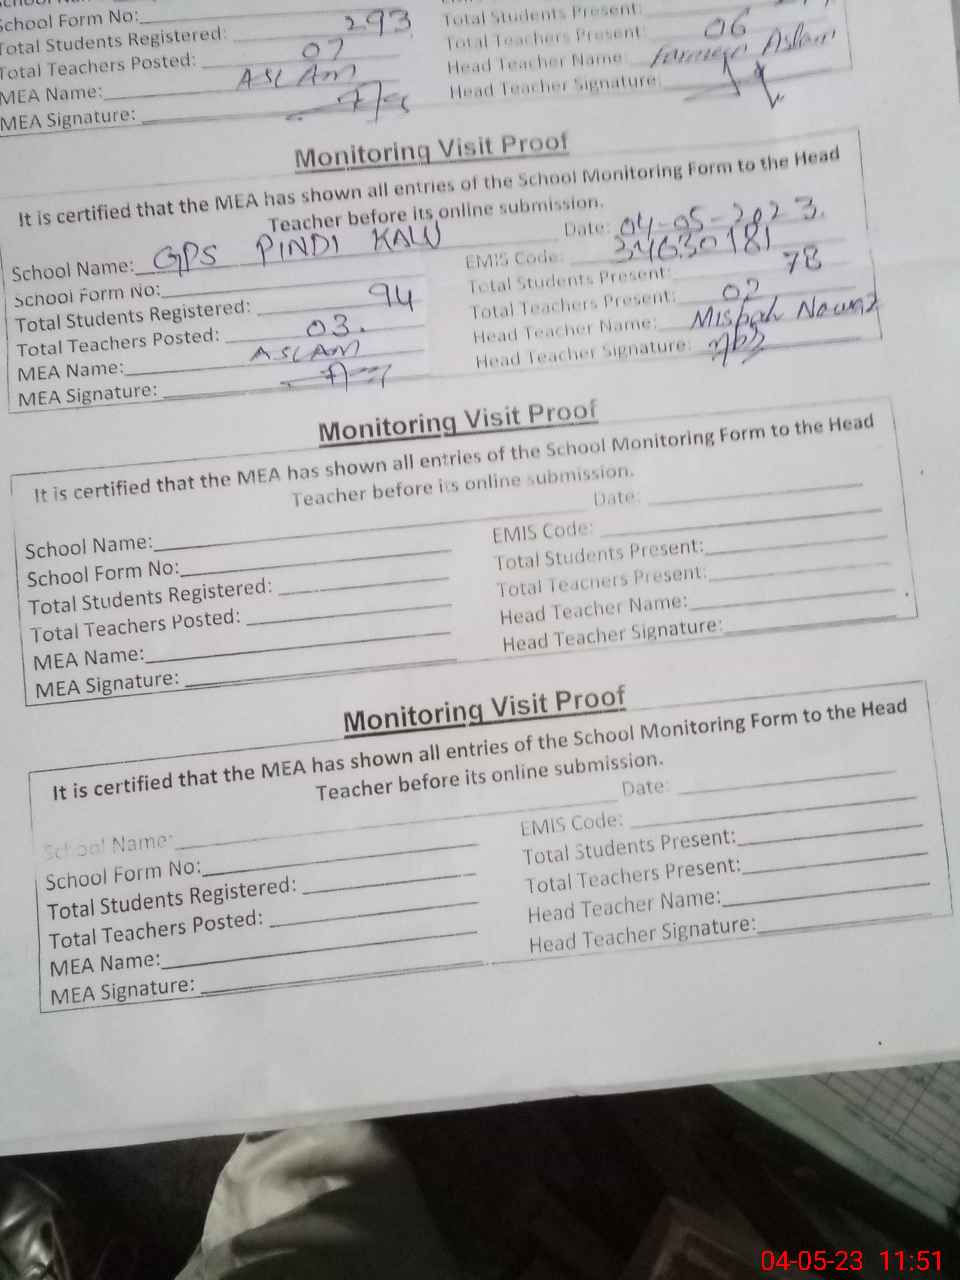 School Form No:
Total Students Present:
Total Students Registered: 293
Total Teachers Present: 06
Total Teachers Posted: 07
Head Teacher Name: Aslam
MEA Name: ASLAM
Head Teacher Signature:
MEA Signature:
Monitoring Visit Proof
It is certified that the MEA has shown all entries of the School Monitoring Form to the Head
Teacher before its online submission.
Date: 04-05-2023.
School Name: GPS PINDI KALU
EMIS Code: 31630181
School Form No:
Total Students Present: 78
Total Students Registered: 94
Total Teachers Present: 02
Total Teachers Posted: 03.
Head Teacher Name: Misbah Nawaz
MEA Name: ASLAM
Head Teacher Signature:
MEA Signature:
Monitoring Visit Proof
It is certified that the MEA has shown all entries of the School Monitoring Form to the Head
Teacher before its online submission.
Date:
School Name:
EMIS Code:
School Form No:
Total Students Present:
Total Students Registered:
Total Teachers Present:
Total Teachers Posted:
Head Teacher Name:
MEA Name:
Head Teacher Signature:
MEA Signature:
Monitoring Visit Proof
It is certified that the MEA has shown all entries of the School Monitoring Form to the Head
Teacher before its online submission.
Date:
School Name:
EMIS Code:
School Form No:
Total Students Present:
Total Students Registered:
Total Teachers Present:
Total Teachers Posted:
Head Teacher Name:
MEA Name:
Head Teacher Signature:
MEA Signature:
04-05-23 11:51